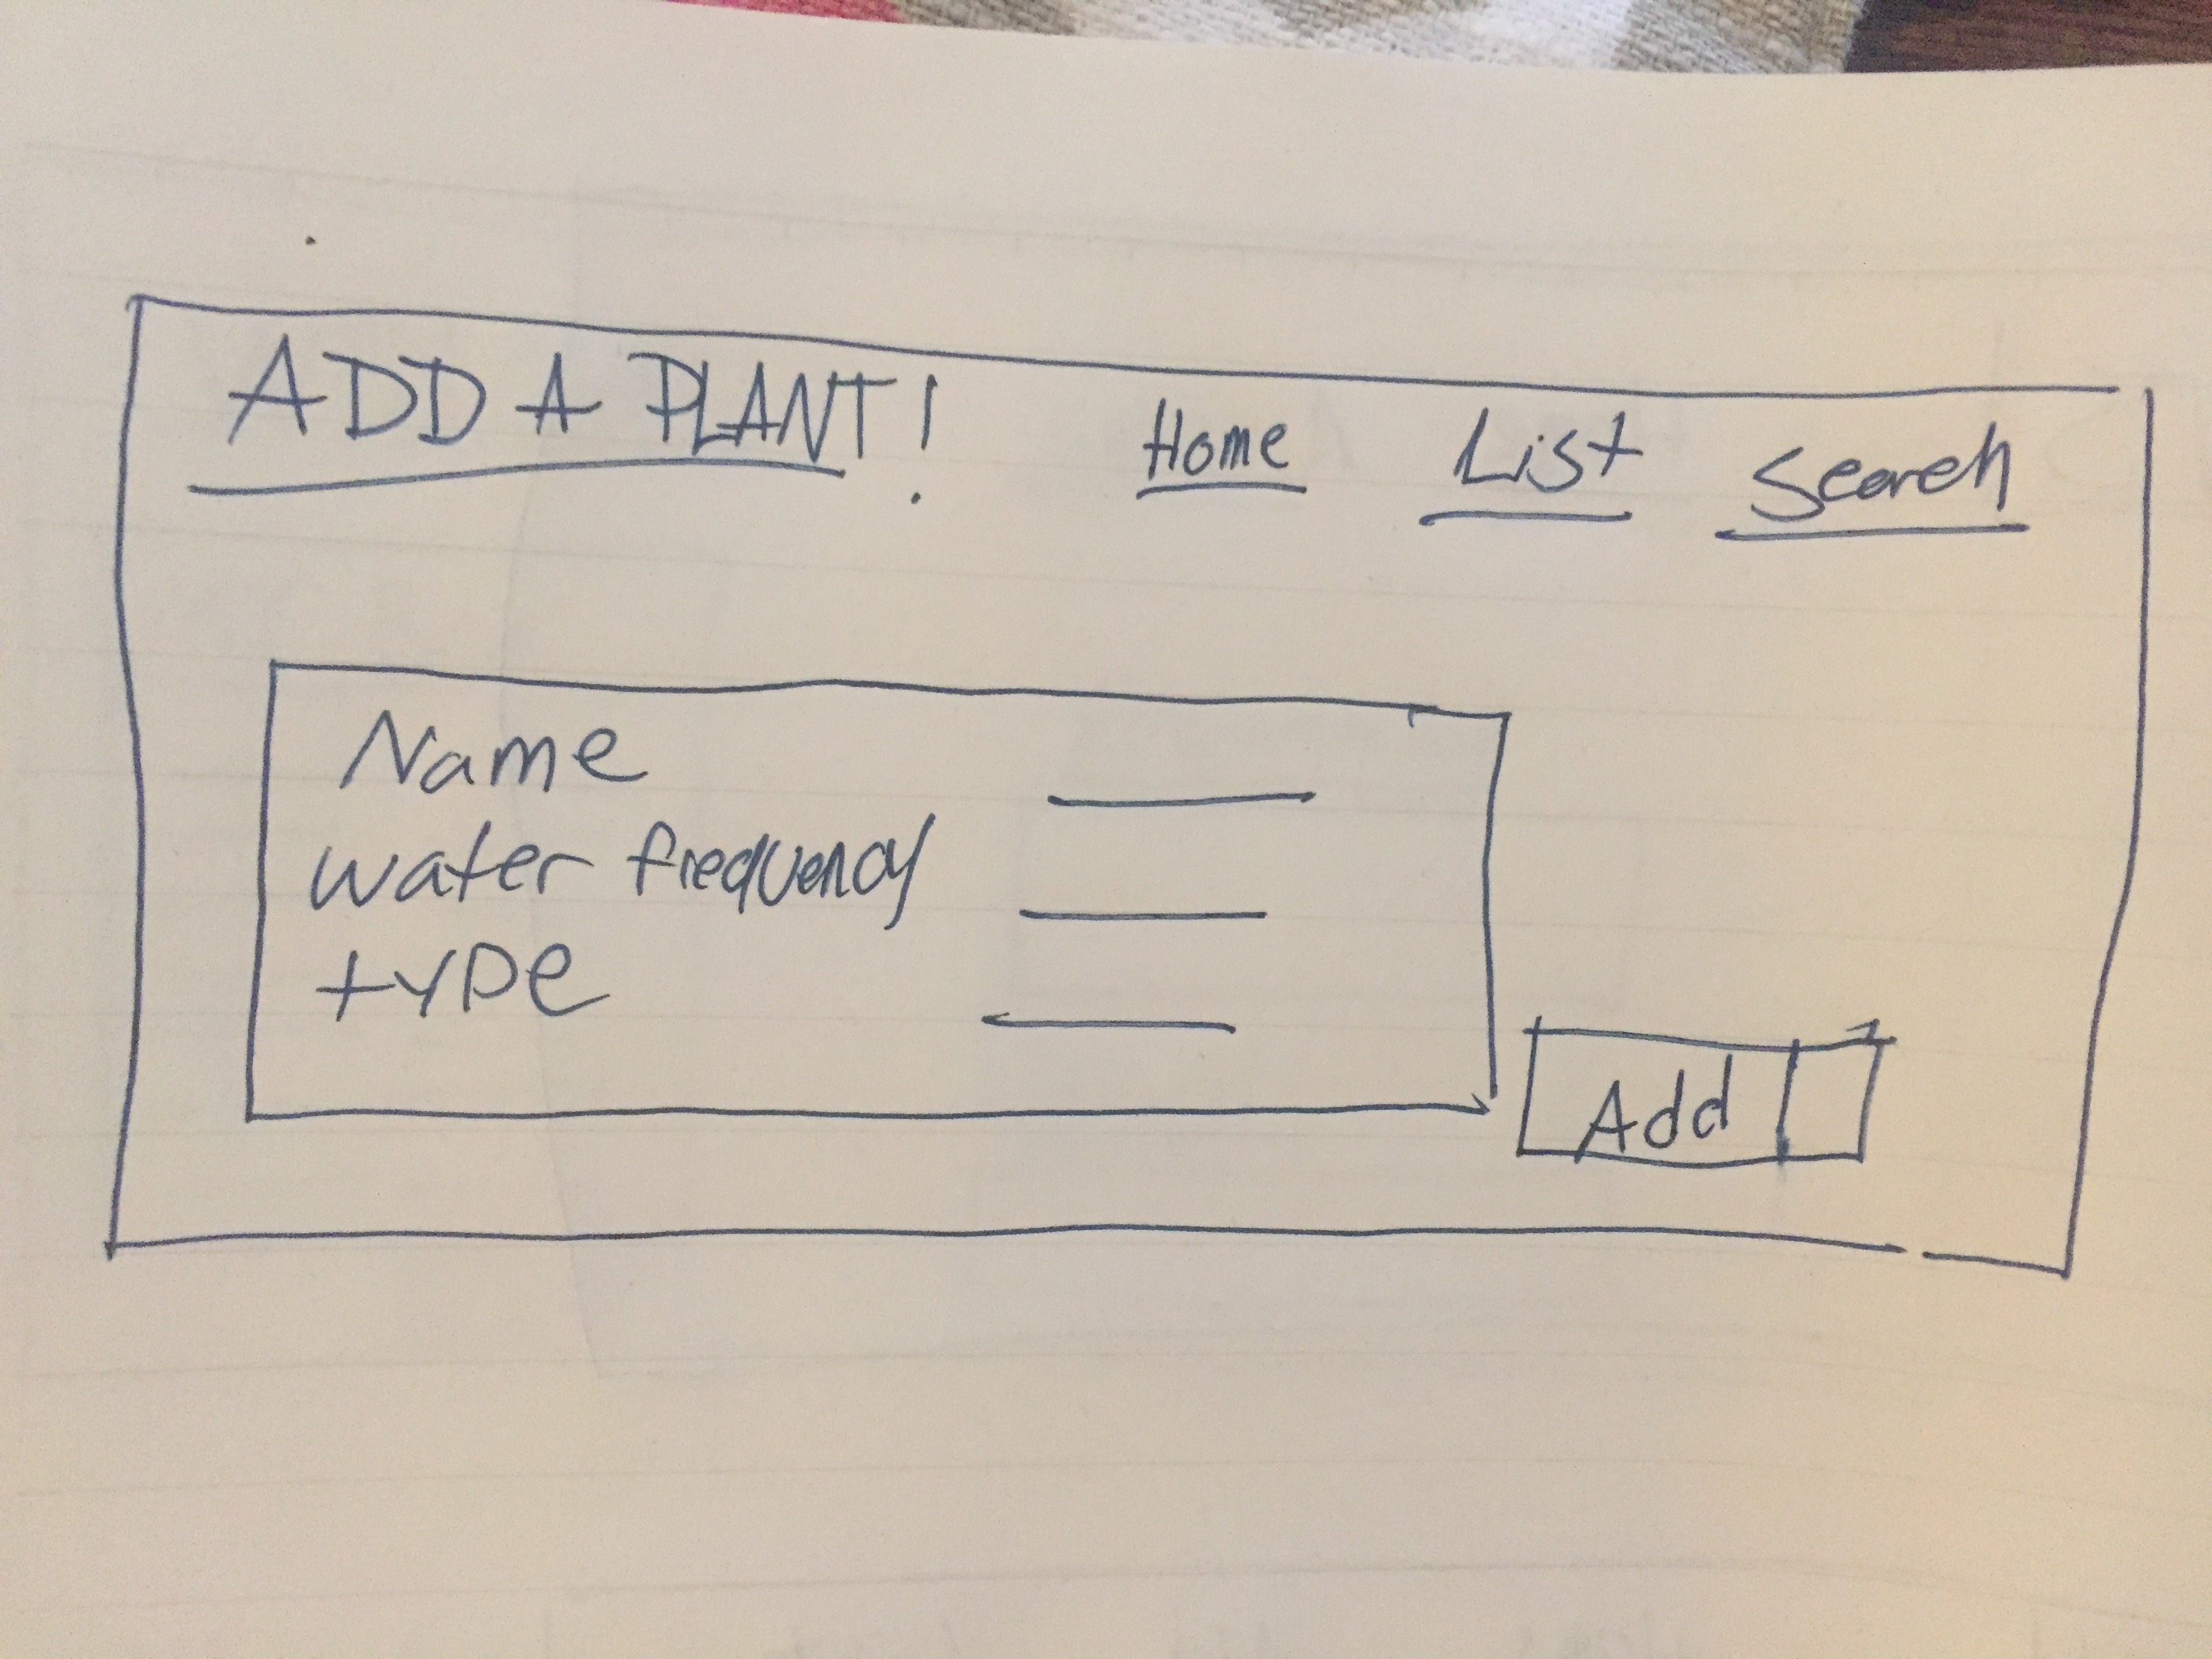 ADD A PLANT! Home List Search
Name
water frequency
type
Add